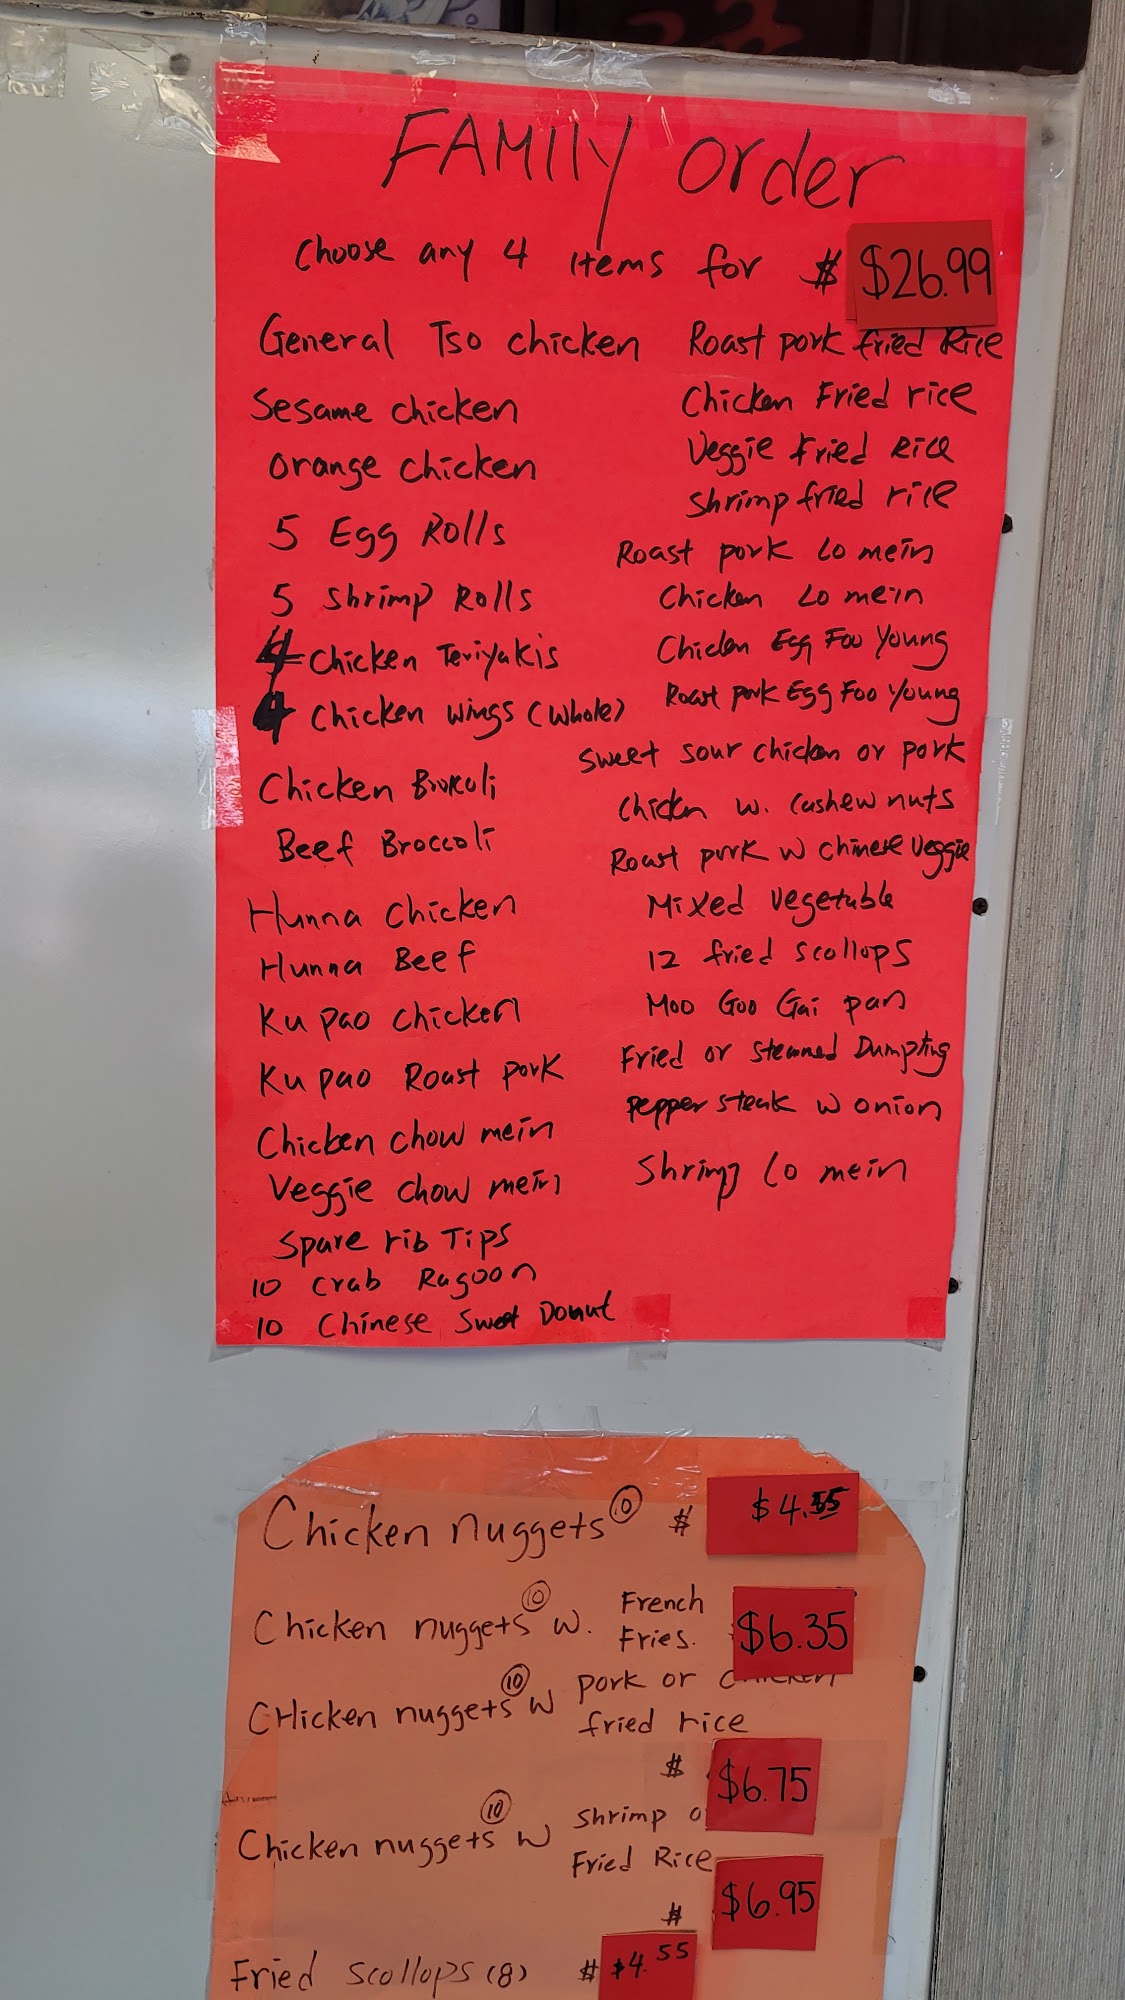 FAMIlY order
Choose any 4 items for $ $26.99
General Tso chicken
Sesame chicken
Orange chicken
5 Egg Rolls
5 Shrimp Rolls
4 Chicken Teriyakis
4 Chicken wings (Whole)
Chicken Brokoli
Beef Broccoli
Hunna Chicken
Hunna Beef
Ku pao chicken
Ku pao Roast pork
Chicken chow mein
Veggie chow mein
Spare rib Tips
10 Crab Ragoon
10 Chinese Sweet Donut
Roast pork fried Rice
Chicken Fried rice
Veggie Fried Rice
Shrimp fried rice
Roast pork Lo mein
Chicken Lo mein
Chicken Egg Foo Young
Roast pork Egg Foo Young
Sweet sour chicken or pork
Chicken w. Cashew nuts
Roast pork w chinese veggie
Mixed vegetable
12 fried scollops
Moo Goo Gai pan
Fried or steamed Dumpting
Pepper steak w onion
Shrimp Lo mein
Chicken nuggets 10 $ $4.55
Chicken nuggets 10 w. French
Fries. $6.35
CHicken nuggets 10 w pork or chicken
fried rice
$ $6.75
Chicken nuggets 10 w shrimp o
Fried Rice
$ $6.95
Fried scollops (8) $ $4.55